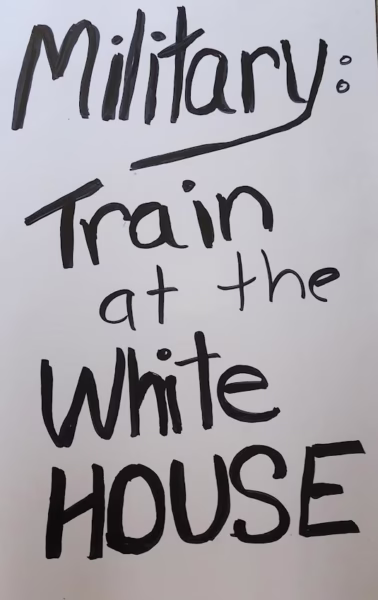 Military:
Train
at the
White
HOUSE